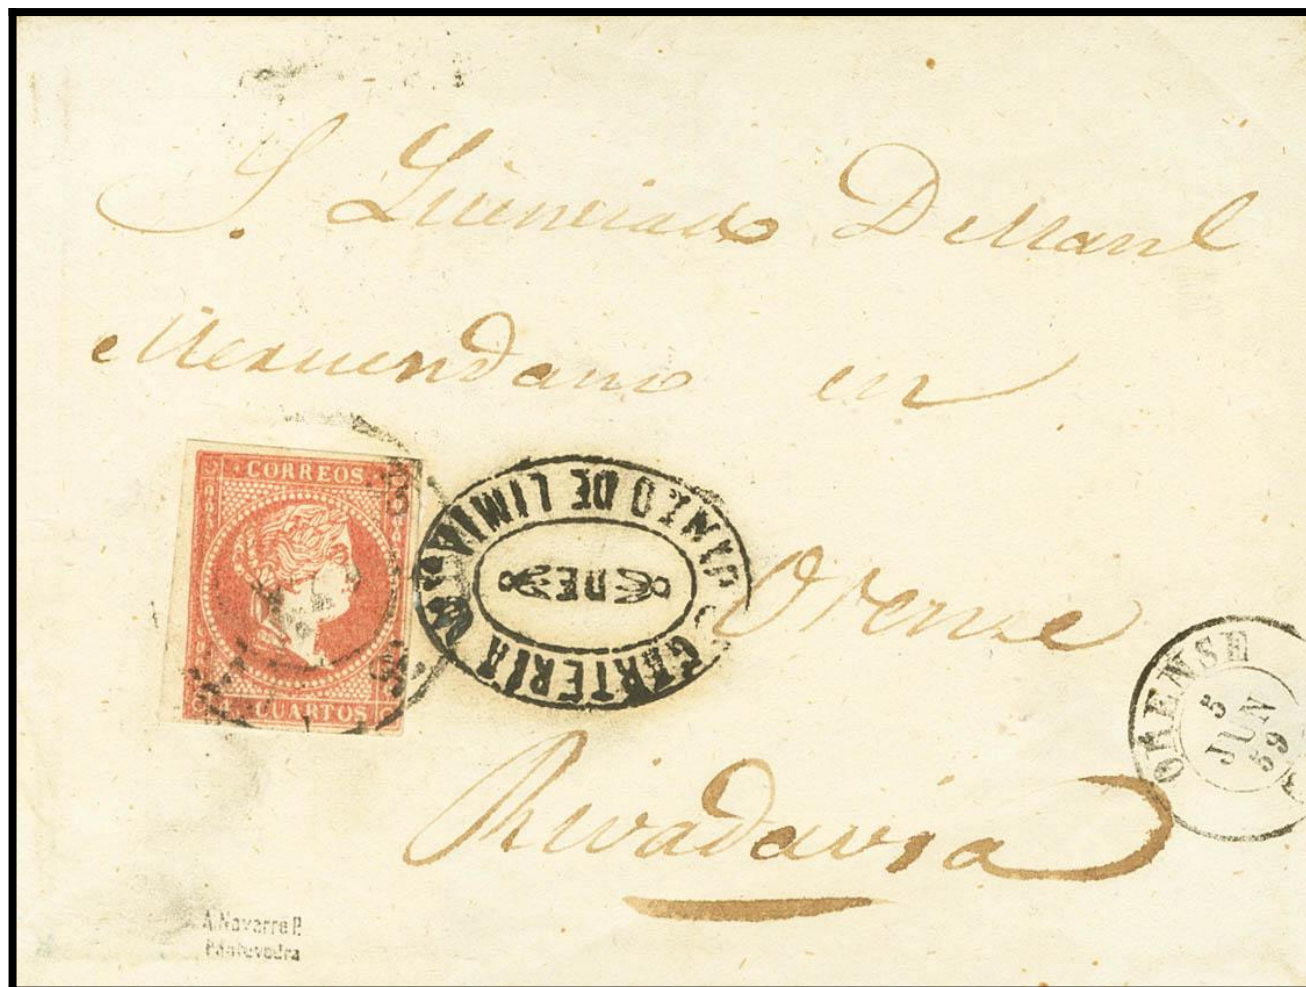 S. Licenciado D Manl
Meruendano en
CORREOS
CUARTOS
CARTERIA DE GINZO DE LIMIA
DE
Orense
ORENSE
5
JUN
59
Rivadavia
A. Navarro P.
Pontevedra